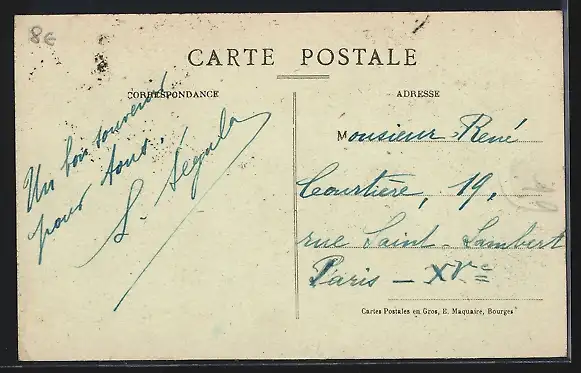 8€
CARTE POSTALE
CORRESPONDANCE
ADRESSE
Un bon souvenir
pour tous.
S. Ségala
Monsieur René
Courtière, 19,
rue Saint-Lambert
Paris — XVe
Cartes Postales en Gros, E. Maquaire, Bourges